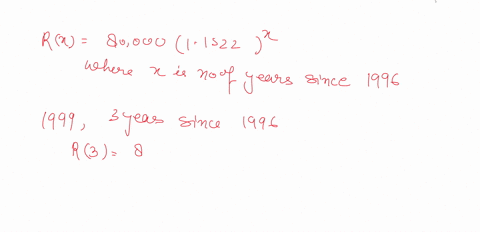 R(x) = 80,000 (1.1522)^x
where x is no of years since 1996
1999, 3 years since 1996
R(3) = 8